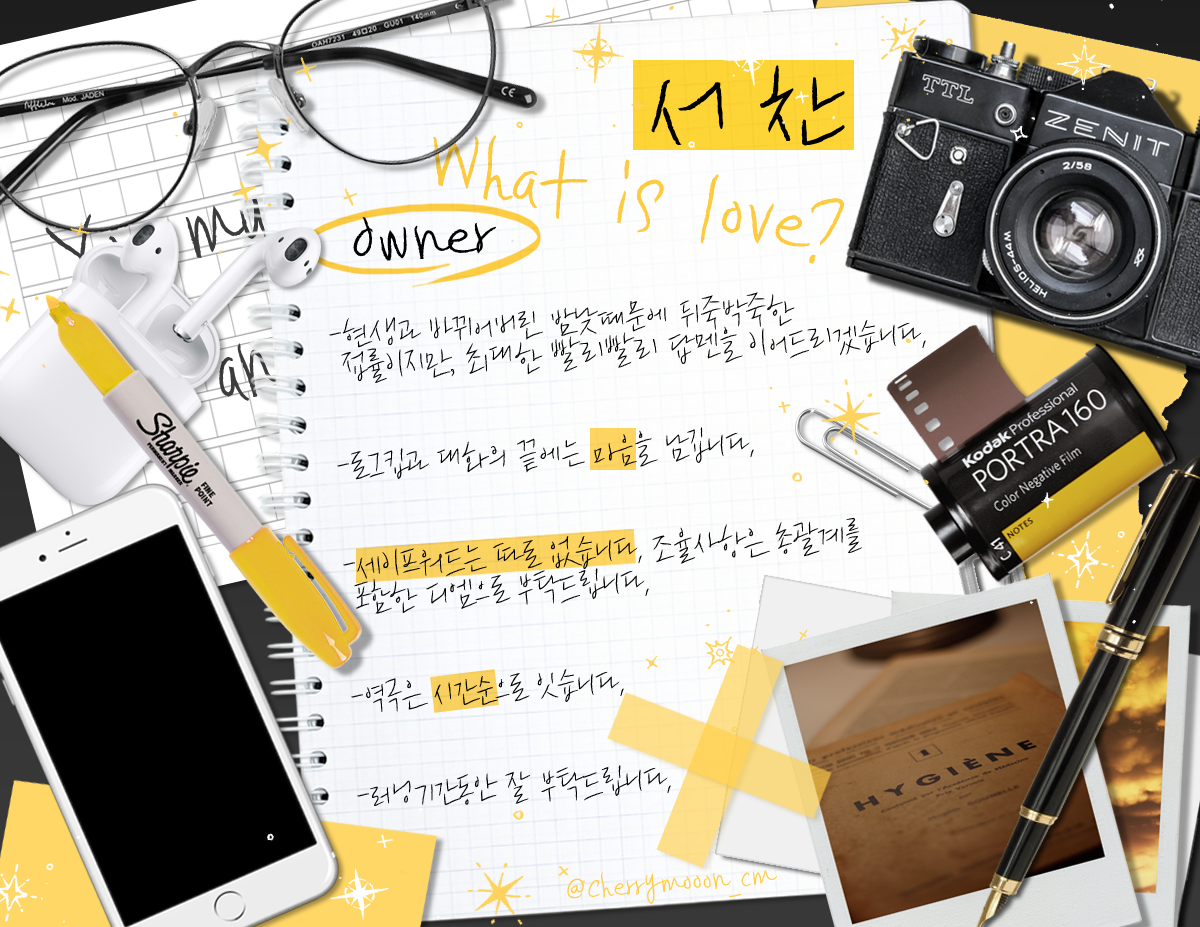 OAH7231 49□20 GU01 140mm
Mod. JADEN
CE
서 찬
What is love?
owner
-현생과 바뀌어버린 밤낮때문에 뒤죽박죽한
접률이지만, 최대한 빨리빨리 답멘을 이어드리겠습니다.
-로그킵과 대화의 끝에는 마음을 남깁니다.
-세이프워드는 따로 없습니다. 조율사항은 총괄계를
포함한 디엠으로 부탁드립니다.
-역극은 시간순으로 잇습니다.
-러닝기간동안 잘 부탁드립니다.
@cherrymooon_cm
TTL
ZENIT
2/58
HELIOS-44M
Kodak Professional
PORTRA 160
Color Negative Film
NOTES
C41
Sharpie
FINE
POINT
1
HYGIÈNE